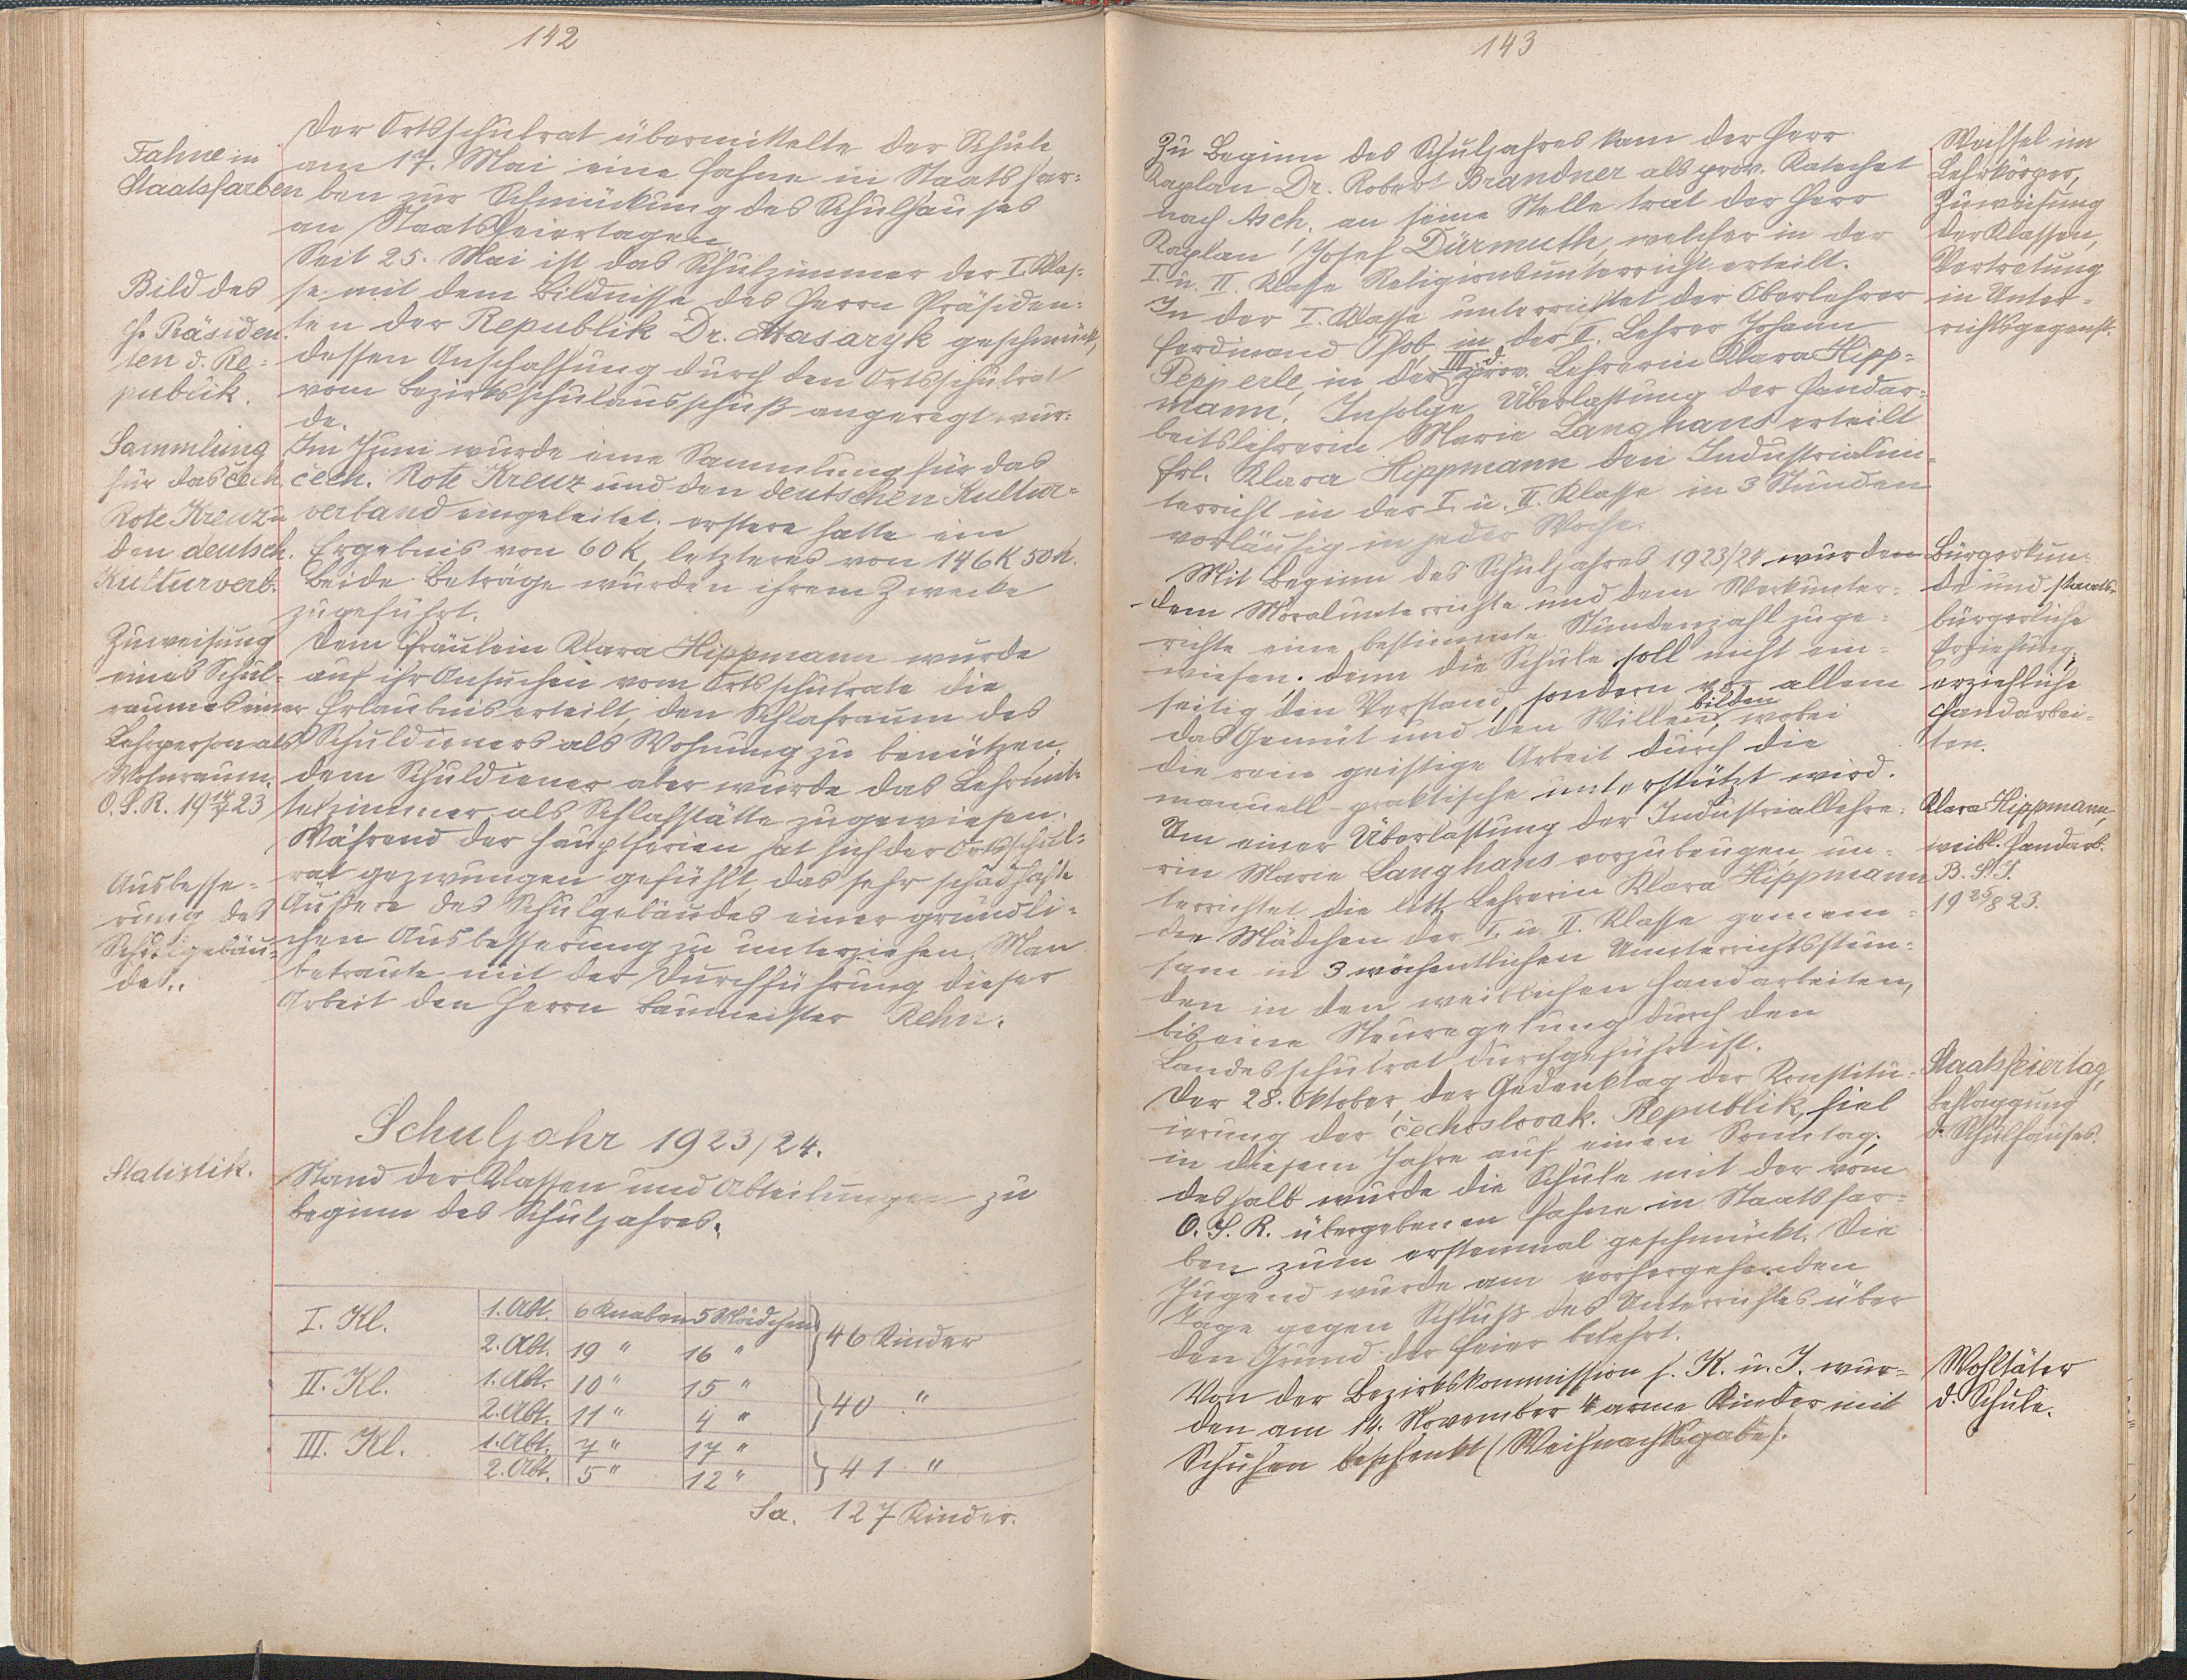 142
Fahne in
Staatsfarben
Der Ortsschulrat übermittelte der Schule
am 17. Mai eine Fahne in Staatsfar-
ben zur Schmückung des Schulhauses
an Staatsfeiertagen.
Bild des
H. Präsiden-
ten d. Re-
publik.
Seit 25. Mai ist das Schulzimmer der I. Klas-
se mit dem Bildnisse des Herrn Präsiden-
ten der Republik Dr. Masaryk geschmückt,
dessen Anschaffung durch den Ortsschulrat
vom Bezirksschulausschuß angeregt wur-
de.
Sammlung
für das čech.
Rote Kreuz u
den deutsch.
Kulturverb.
Im Juni wurde eine Sammlung für das
čech. Rote Kreuz und den deutschen Kultur-
verband eingeleitet; erstere hatte ein
Ergebnis von 60 K, letzteres von 146 K 50 h.
Beide Beträge wurden ihrem Zwecke
zugeführt.
Zuweisung
eines Schul-
raumes einer
Lehrperson als
Wohnraum.
O.S.R. 19 14/7 23
Dem Fräulein Klara Hippmann wurde
auf ihr Ansuchen vom Ortsschulrate die
Erlaubnis erteilt, den Schlafraum des
Schuldieners als Wohnung zu benützen;
dem Schuldiener aber wurde das Lehrmit-
telzimmer als Schlafstätte zugewiesen.
Ausbesse-
rung des
Schulgebäu-
des.
Während der Hauptferien hat sich der Ortsschul-
rat gezwungen gefühlt, das sehr schadhafte
Äußere des Schulgebäudes einer gründli-
chen Ausbesserung zu unterziehen. Man
betraute mit der Durchführung dieser
Arbeit den Herrn Baumeister Rehn.
Schuljahr 1923/24.
Statistik.
Stand der Klassen und Abteilungen zu
Beginn des Schuljahres.
I. Kl. 1. Abt. 6 Knaben 5 Mädchen
2. Abt. 19 " 16 " } 46 Kinder
II. Kl. 1. Abt. 10 " 15 "
2. Abt. 11 " 4 " } 40 "
III. Kl. 1. Abt. 7 " 17 "
2. Abt. 5 " 12 " } 41 "
Sa. 127 Kinder.
143
Zu Beginn des Schuljahres kam der Herr
Kaplan Dr. Robert Brandner als prov. Katechet
nach Asch, an seine Stelle trat der Herr
Kaplan Josef Dürmuth, welcher in der
I. u. II. Klasse Religionsunterricht erteilt.
In der I. Klasse unterrichtet der Oberlehrer
Ferdinand Hob, in der II. Lehrer Johann
Pepperle, in der III. d. prov. Lehrerin Klara Hipp-
mann. Infolge Überlastung der Handar-
beitslehrerin Marie Langhans erteilt
Frl. Klara Hippmann den Industrialun-
terricht in der I. u. II. Klasse in 3 Stunden
vorläufig in jeder Woche.
Wechsel im
Lehrkörper,
Zuweisung
der Klassen,
Vertretung
in Unter-
richtsgegenst.
Mit Beginn des Schuljahres 1923/24 wurden
dem Moralunterrichte und dem Werkunter-
richte eine bestimmte Stundenzahl zuge-
wiesen; denn die Schule soll nicht ein-
seitig den Verstand, sondern vor allem
das Gemüt und den Willen bilden, wobei
die rein geistige Arbeit durch die
manuell-praktische unterstützt wird.
Bürgerkun-
de und staats-
bürgerliche
Erziehung;
erziehliche
Handarbei-
ten.
Um einer Überlastung der Industriallehre-
rin Marie Langhans vorzubeugen, un-
terrichtet die litt. Lehrerin Klara Hippmann
die Mädchen der I. u. II. Klasse gemein-
sam in 3 wöchentlichen Unterrichtsstun-
den in den weiblichen Handarbeiten,
bis eine Neuregelung durch den
Landesschulrat durchgeführt ist.
Klara Hippmann,
weibl. Handarb.
19 25/8 23.
Der 28. Oktober, der Gedenktag der Konstitu-
ierung der čechoslovak. Republik, fiel
in diesem Jahre auf einen Sonntag;
deshalb wurde die Schule mit der vom
O.S.R. übergebenen Fahne in Staatsfar-
ben zum erstenmal geschmückt. Die
Jugend wurde am vorhergehenden
Tage gegen Schluß des Unterrichtes über
den Grund der Feier belehrt.
Staatsfeiertag,
Beflaggung
d. Schulhauses.
Von der Bezirkskommission f. K. u. J. wur-
den am 14. November 4 arme Kinder mit
Schuhen beschenkt (Weihnachtsgabe).
Wohltäter
d. Schule.